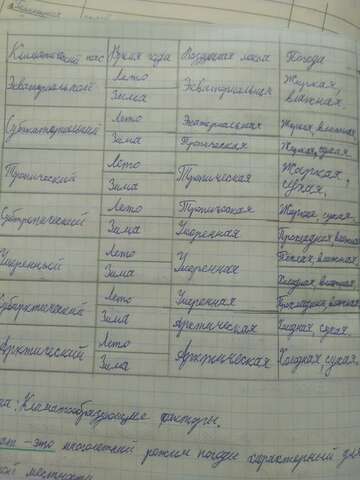 Климатический пояс Время года Воздушная масса Погода
Экваториальный Лето Экваториальная Жаркая,
Зима влажная.
Субэкваториальный Лето Экваториальная Жаркая, влажная
Зима Тропическая Жаркая, сухая
Тропический Лето Тропическая Жаркая,
Зима сухая.
Субтропический Лето Тропическая Жаркая, сухая,
Зима Умеренная Прохладная, влажная
Умеренный Лето Умеренная Теплая, влажная,
Зима Холодная, влажная,
Субарктический Лето Умеренная Прохладная, влажная
Зима Арктическая Холодная, сухая.
Арктический Лето Арктическая Холодная, сухая.
Зима
: Климатообразующие факторы.
– это многолетний режим погоды характерный для
местности